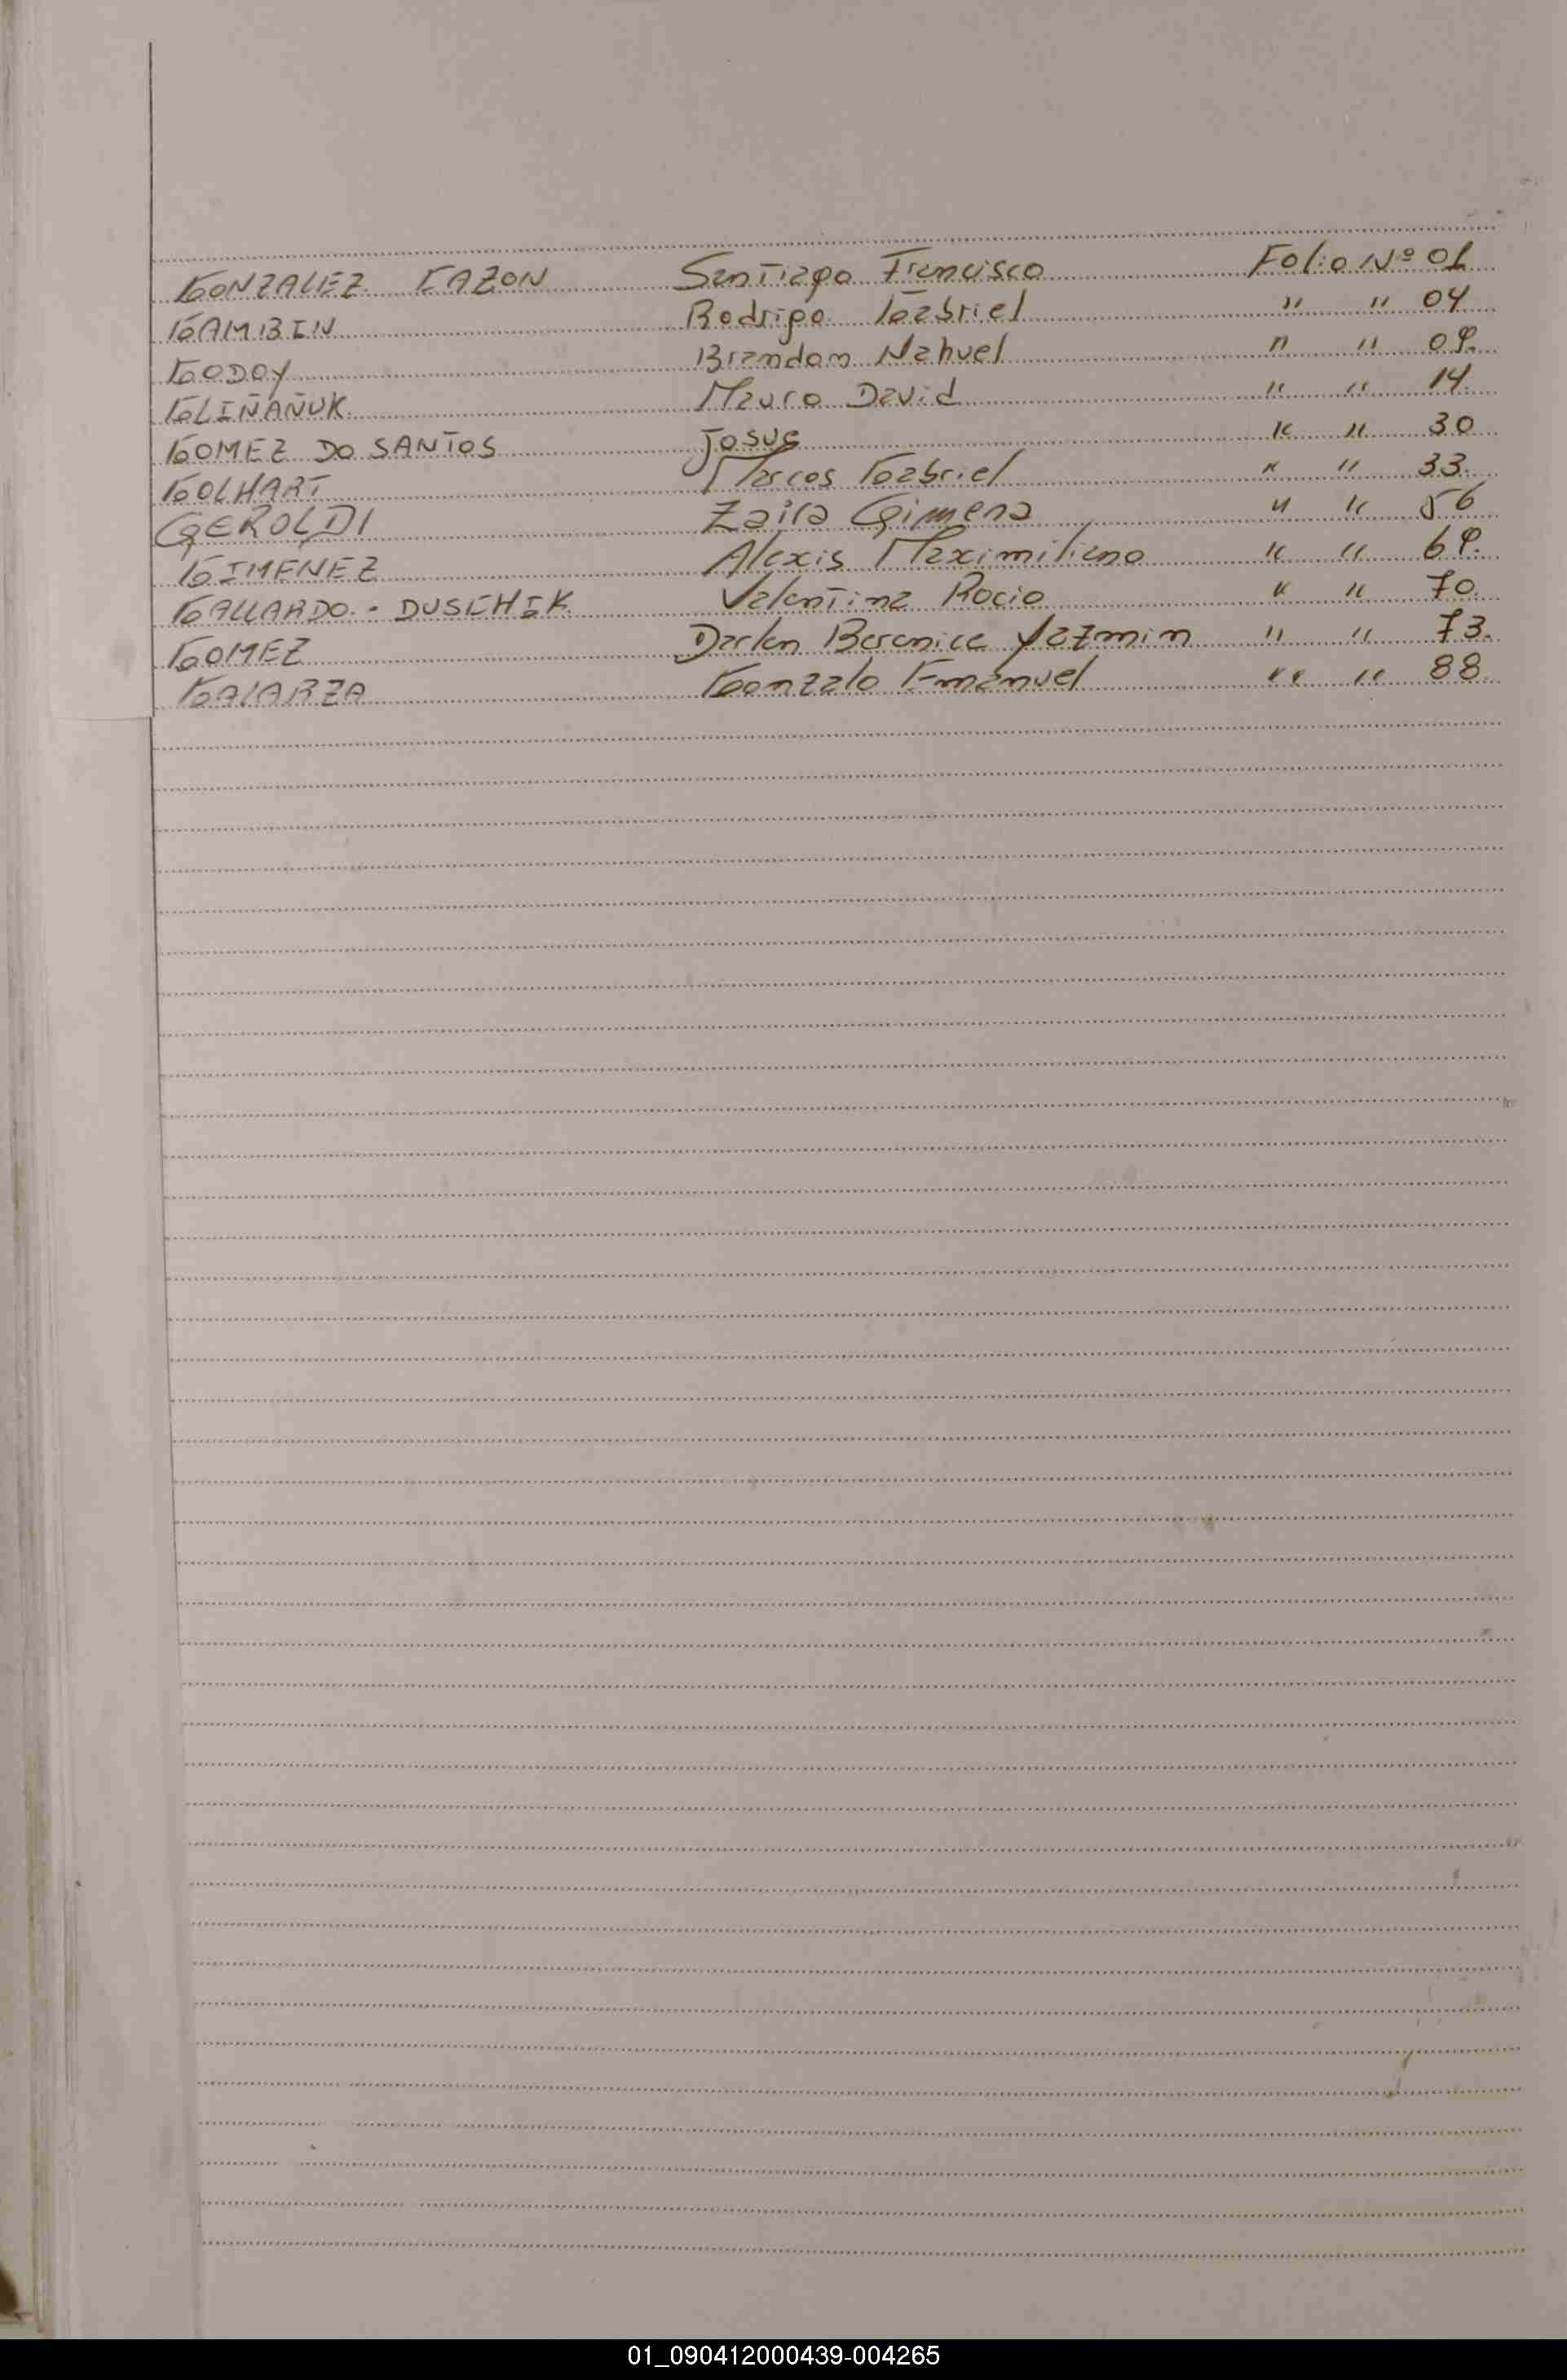 GONZALEZ CAZON Santiago Francisco Folio Nº 01
GAMBIN Rodrigo Gabriel " " 04
GODOY Brandon Nahuel " " 09.
GLIÑAÑUK Mauro David " " 14.
GOMEZ DO SANTOS Josue " " 30
GOLHART Marcos Gabriel " " 33.
GEROLDI Zaira Gimena " " 56
GIMENEZ Alexis Maximiliano " " 69.
GALLARDO - DUSCHIK Valentina Rocio " " 70.
GOMEZ Darlen Berenice Yazmin " " 73.
GALARZA Gonzalo Emanuel " " 88.
01_090412000439-004265